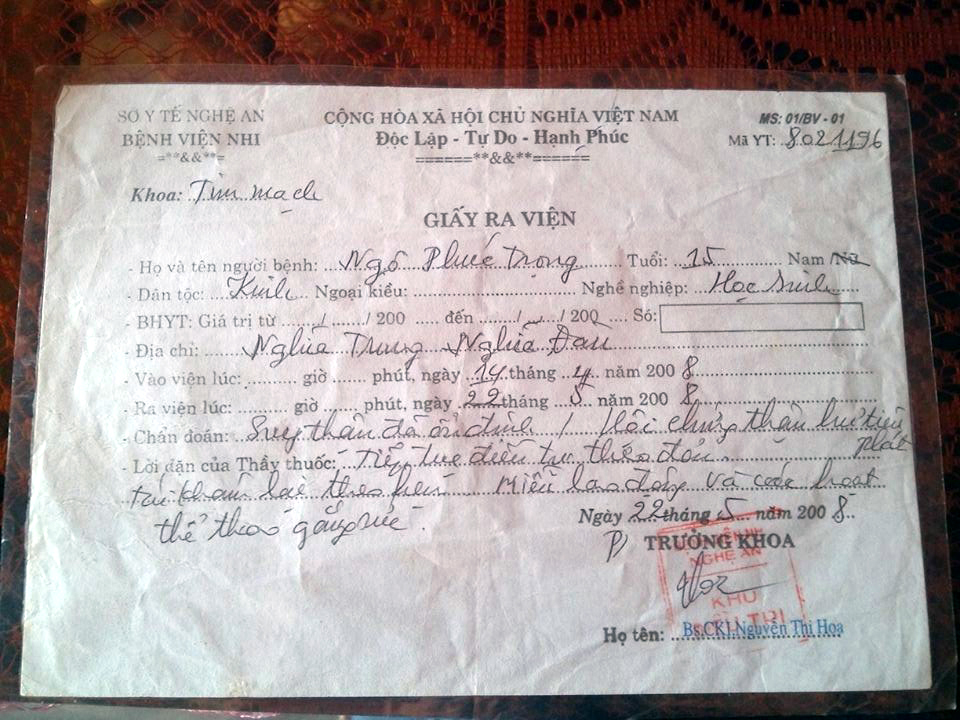 SỞ Y TẾ NGHỆ AN
BỆNH VIỆN NHI
=**&&**=
CỘNG HÒA XÃ HỘI CHỦ NGHĨA VIỆT NAM
Độc Lập - Tự Do - Hạnh Phúc
======**&&**======
MS: 01/BV - 01
Mã YT: 8021196
Khoa: Tim mạch
GIẤY RA VIỆN
- Họ và tên người bệnh: Ngô Phúc Trọng Tuổi: 15 Nam /Nữ
- Dân tộc: Kinh Ngoại kiều: Nghề nghiệp: Học sinh
- BHYT: Giá trị từ ....../......./ 200 ..... đến ....../......./ 200 .... Số:
- Địa chỉ: Nghĩa Trung Nghĩa Đàn
- Vào viện lúc: ......... giờ ...... phút, ngày 14 tháng 4 năm 200 8
- Ra viện lúc: ......... giờ ...... phút, ngày 22 tháng 5 năm 200 8
- Chẩn đoán: Suy thận đã ổn định / Hội chứng thận hư tiên phát
- Lời dặn của Thầy thuốc: Tiếp tục điều trị theo đơn
tái khám lại theo hẹn Miễn lao động và các hoạt
thể thao gắng sức.
Ngày 22 tháng 5 năm 200 8
P) TRƯỞNG KHOA
BỆNH VIỆN NHI
NGHỆ AN
KHU
ĐIỀU TRỊ
Họ tên: Bs.CKI.Nguyễn Thị Hoa